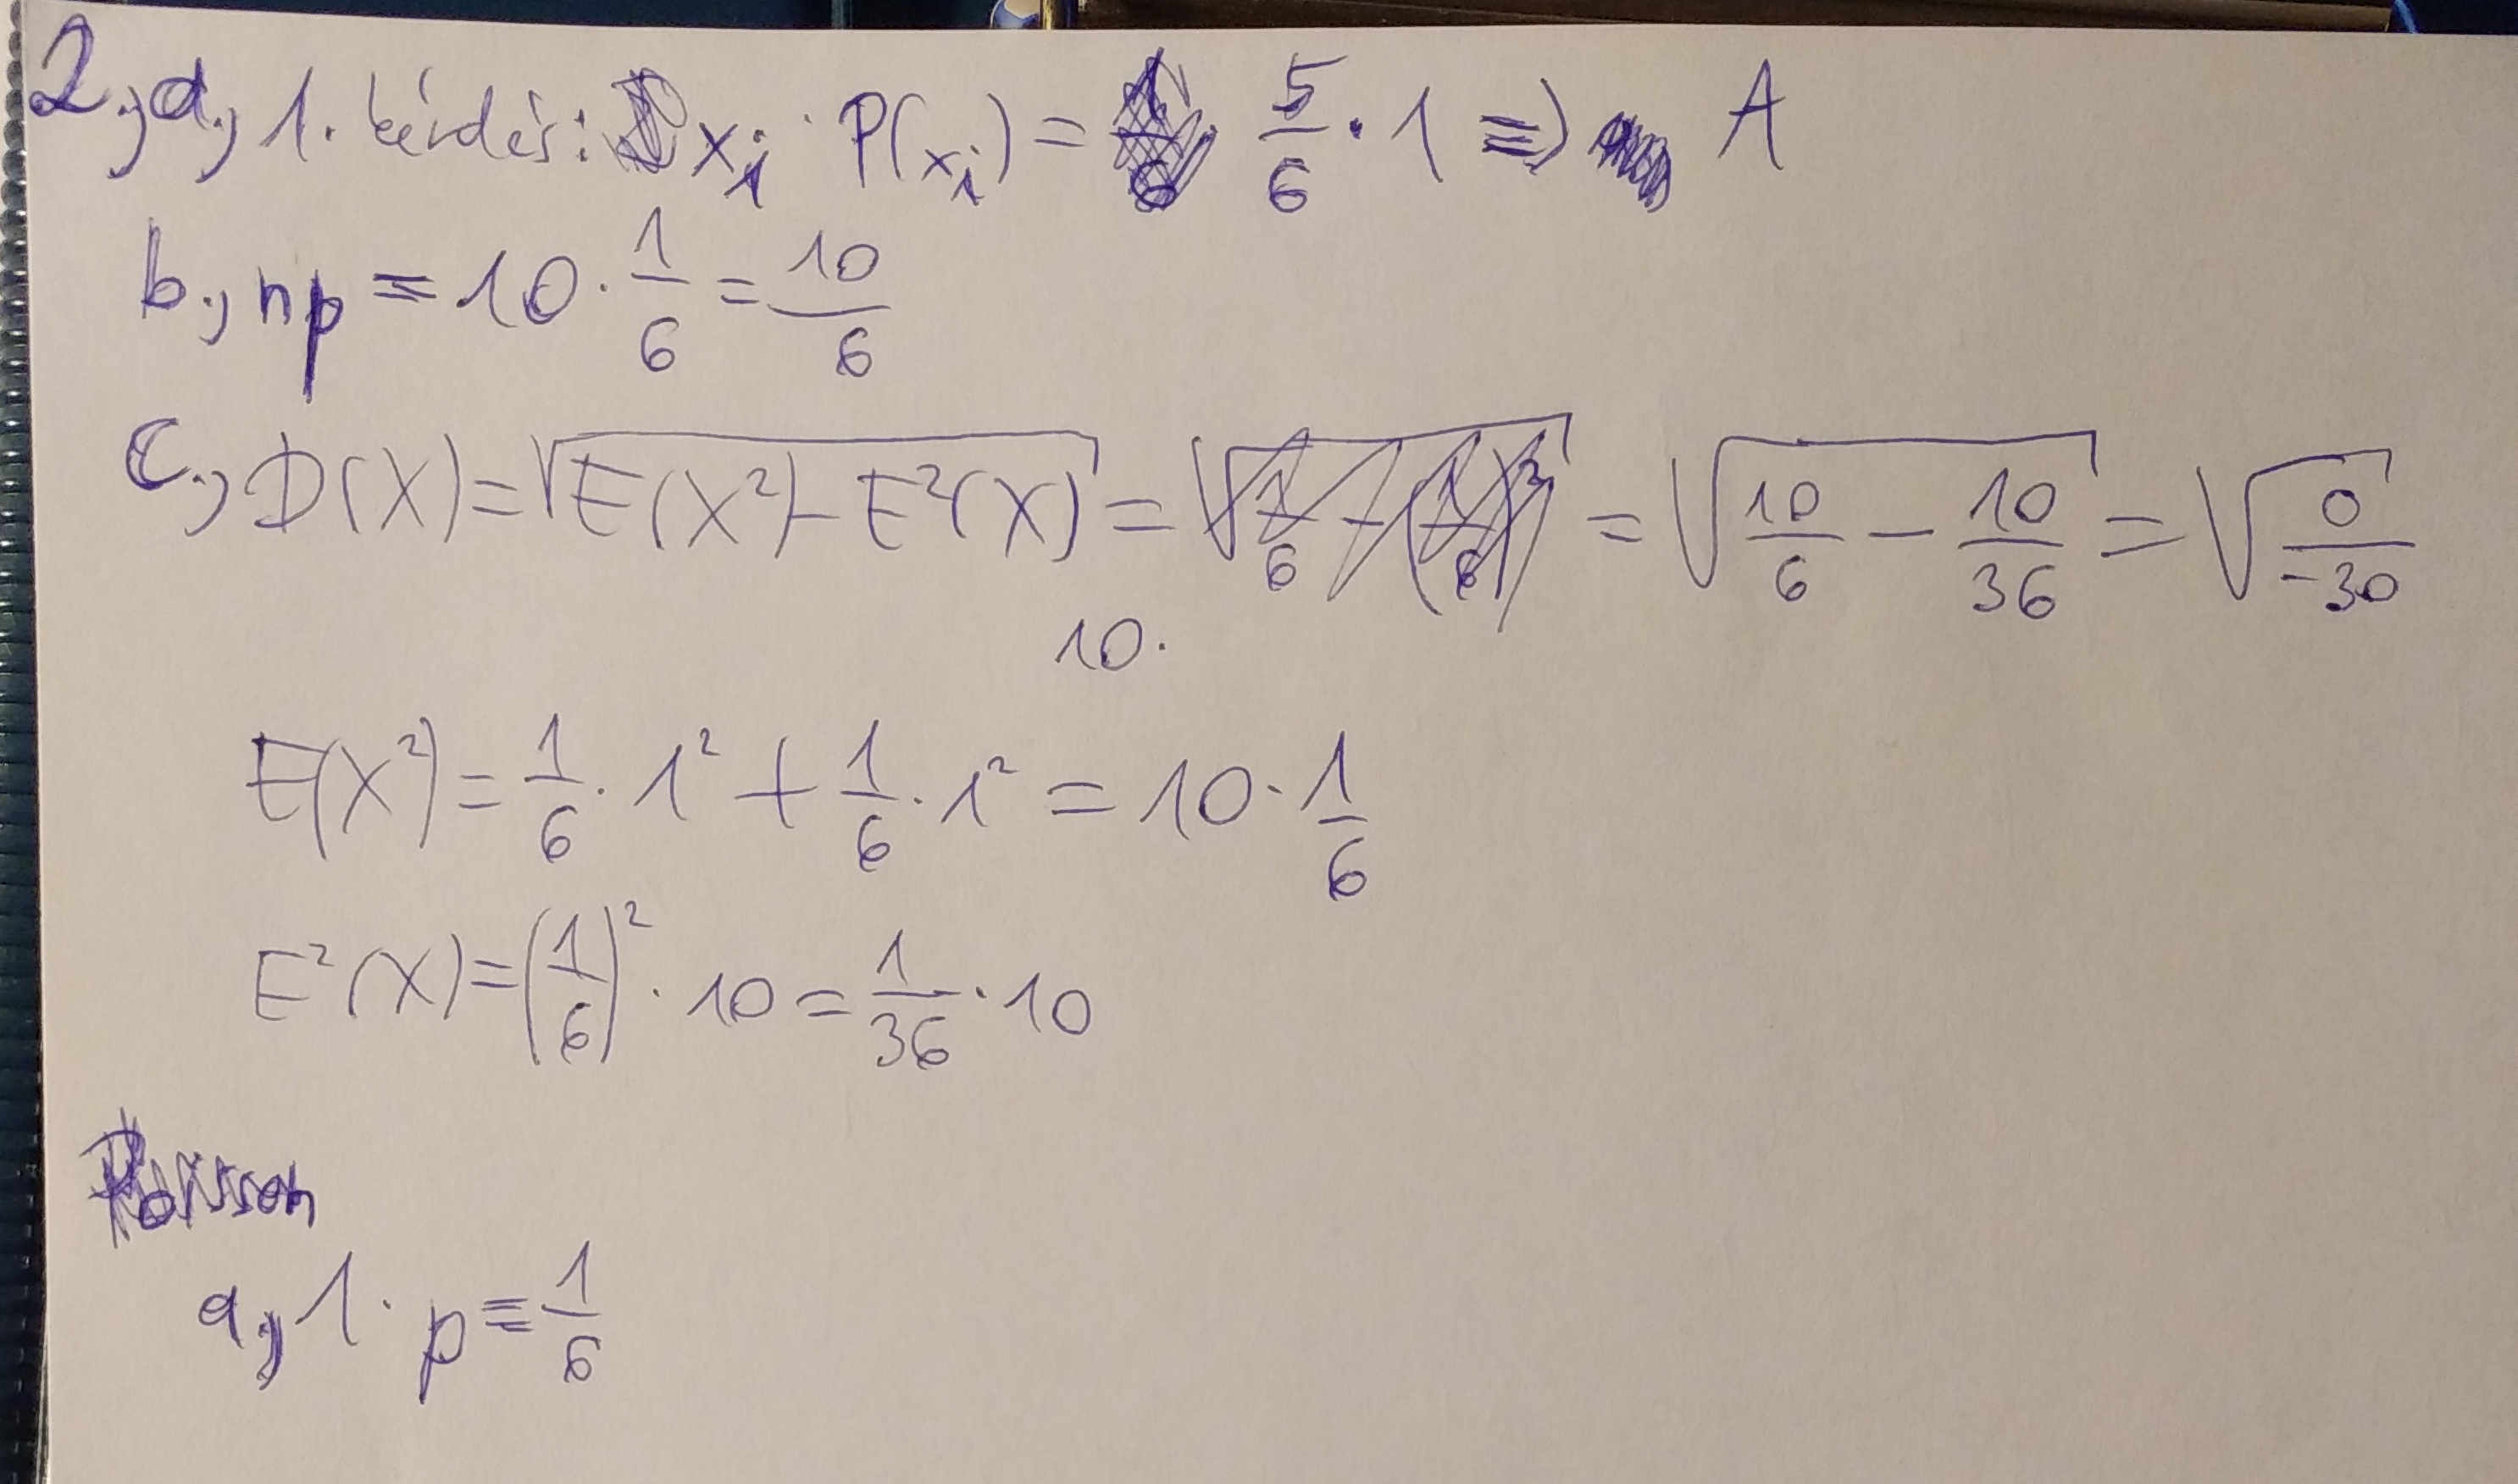 2., d., 1. kérdés: x_i · P(x_i) = 5/6 · 1 => A
b., np = 10 · 1/6 = 10/6
c., D(X) = √(E(X²) - E²(X)) = √(1/6 - (1/6)²) = √(10/6 - 10/36) = √(0/-30)
10·
E(X²) = 1/6 · 1² + 1/6 · 1² = 10 · 1/6
E²(X) = (1/6)² · 10 = 1/36 · 10
Poisson
a., 1. p = 1/6